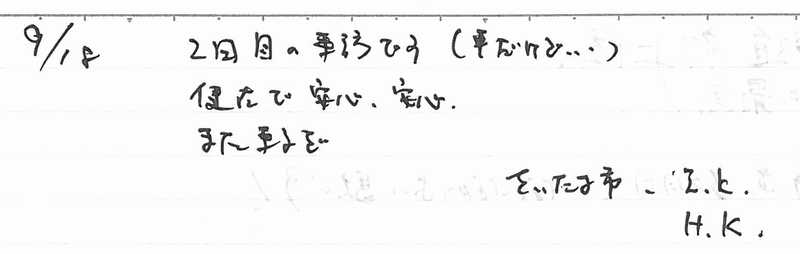 9/18 2回目の来訪です(車だけど…)
健在で安心、安心.
また来
さいたま市 . K.
H.K.